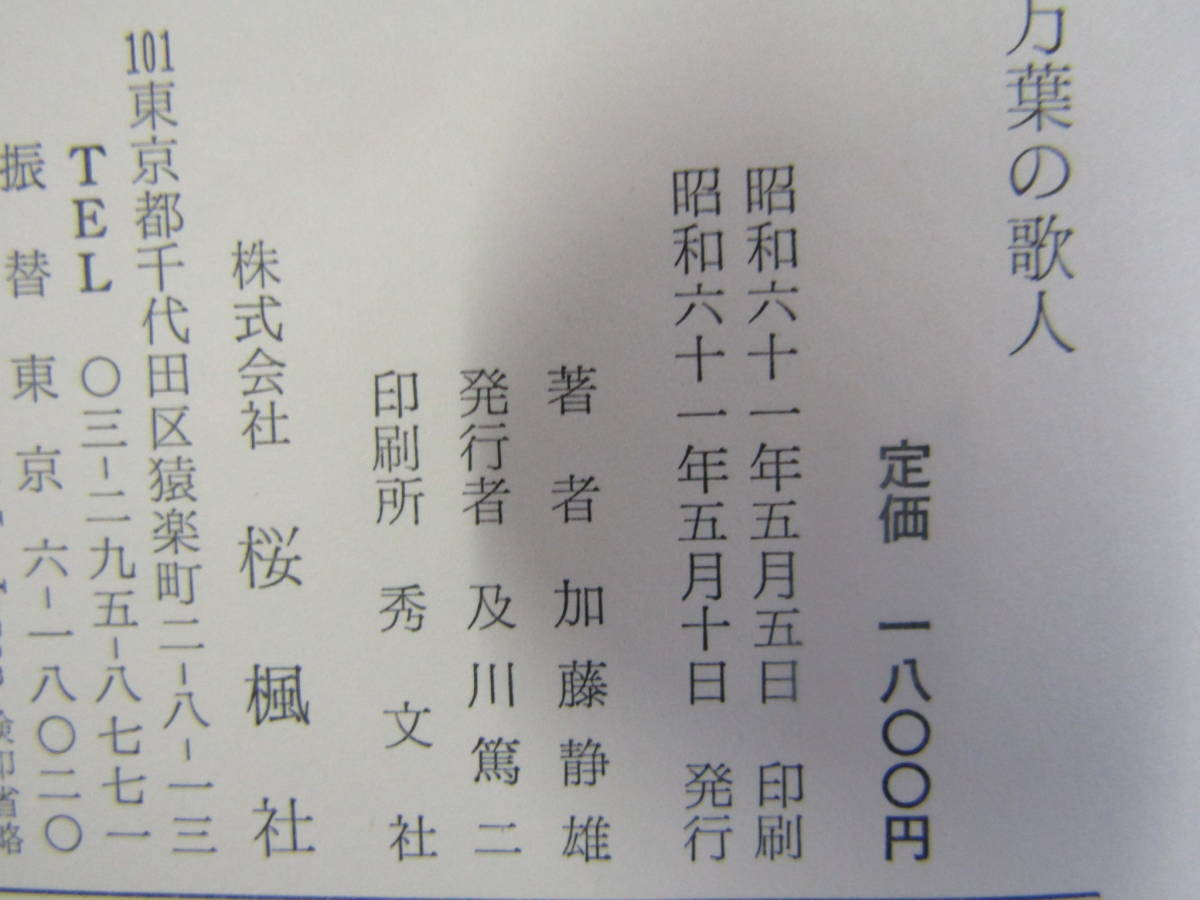 万葉の歌人
定価 一八〇〇円
昭和六十一年五月五日 印刷
昭和六十一年五月十日 発行
著者 加藤静雄
発行者 及川篤二
印刷所 秀文社
株式会社 桜楓社
101東京都千代田区猿楽町二-八-一三
TEL 〇三-二九五-八七七一
振替東京六-一八〇二〇
検印省略